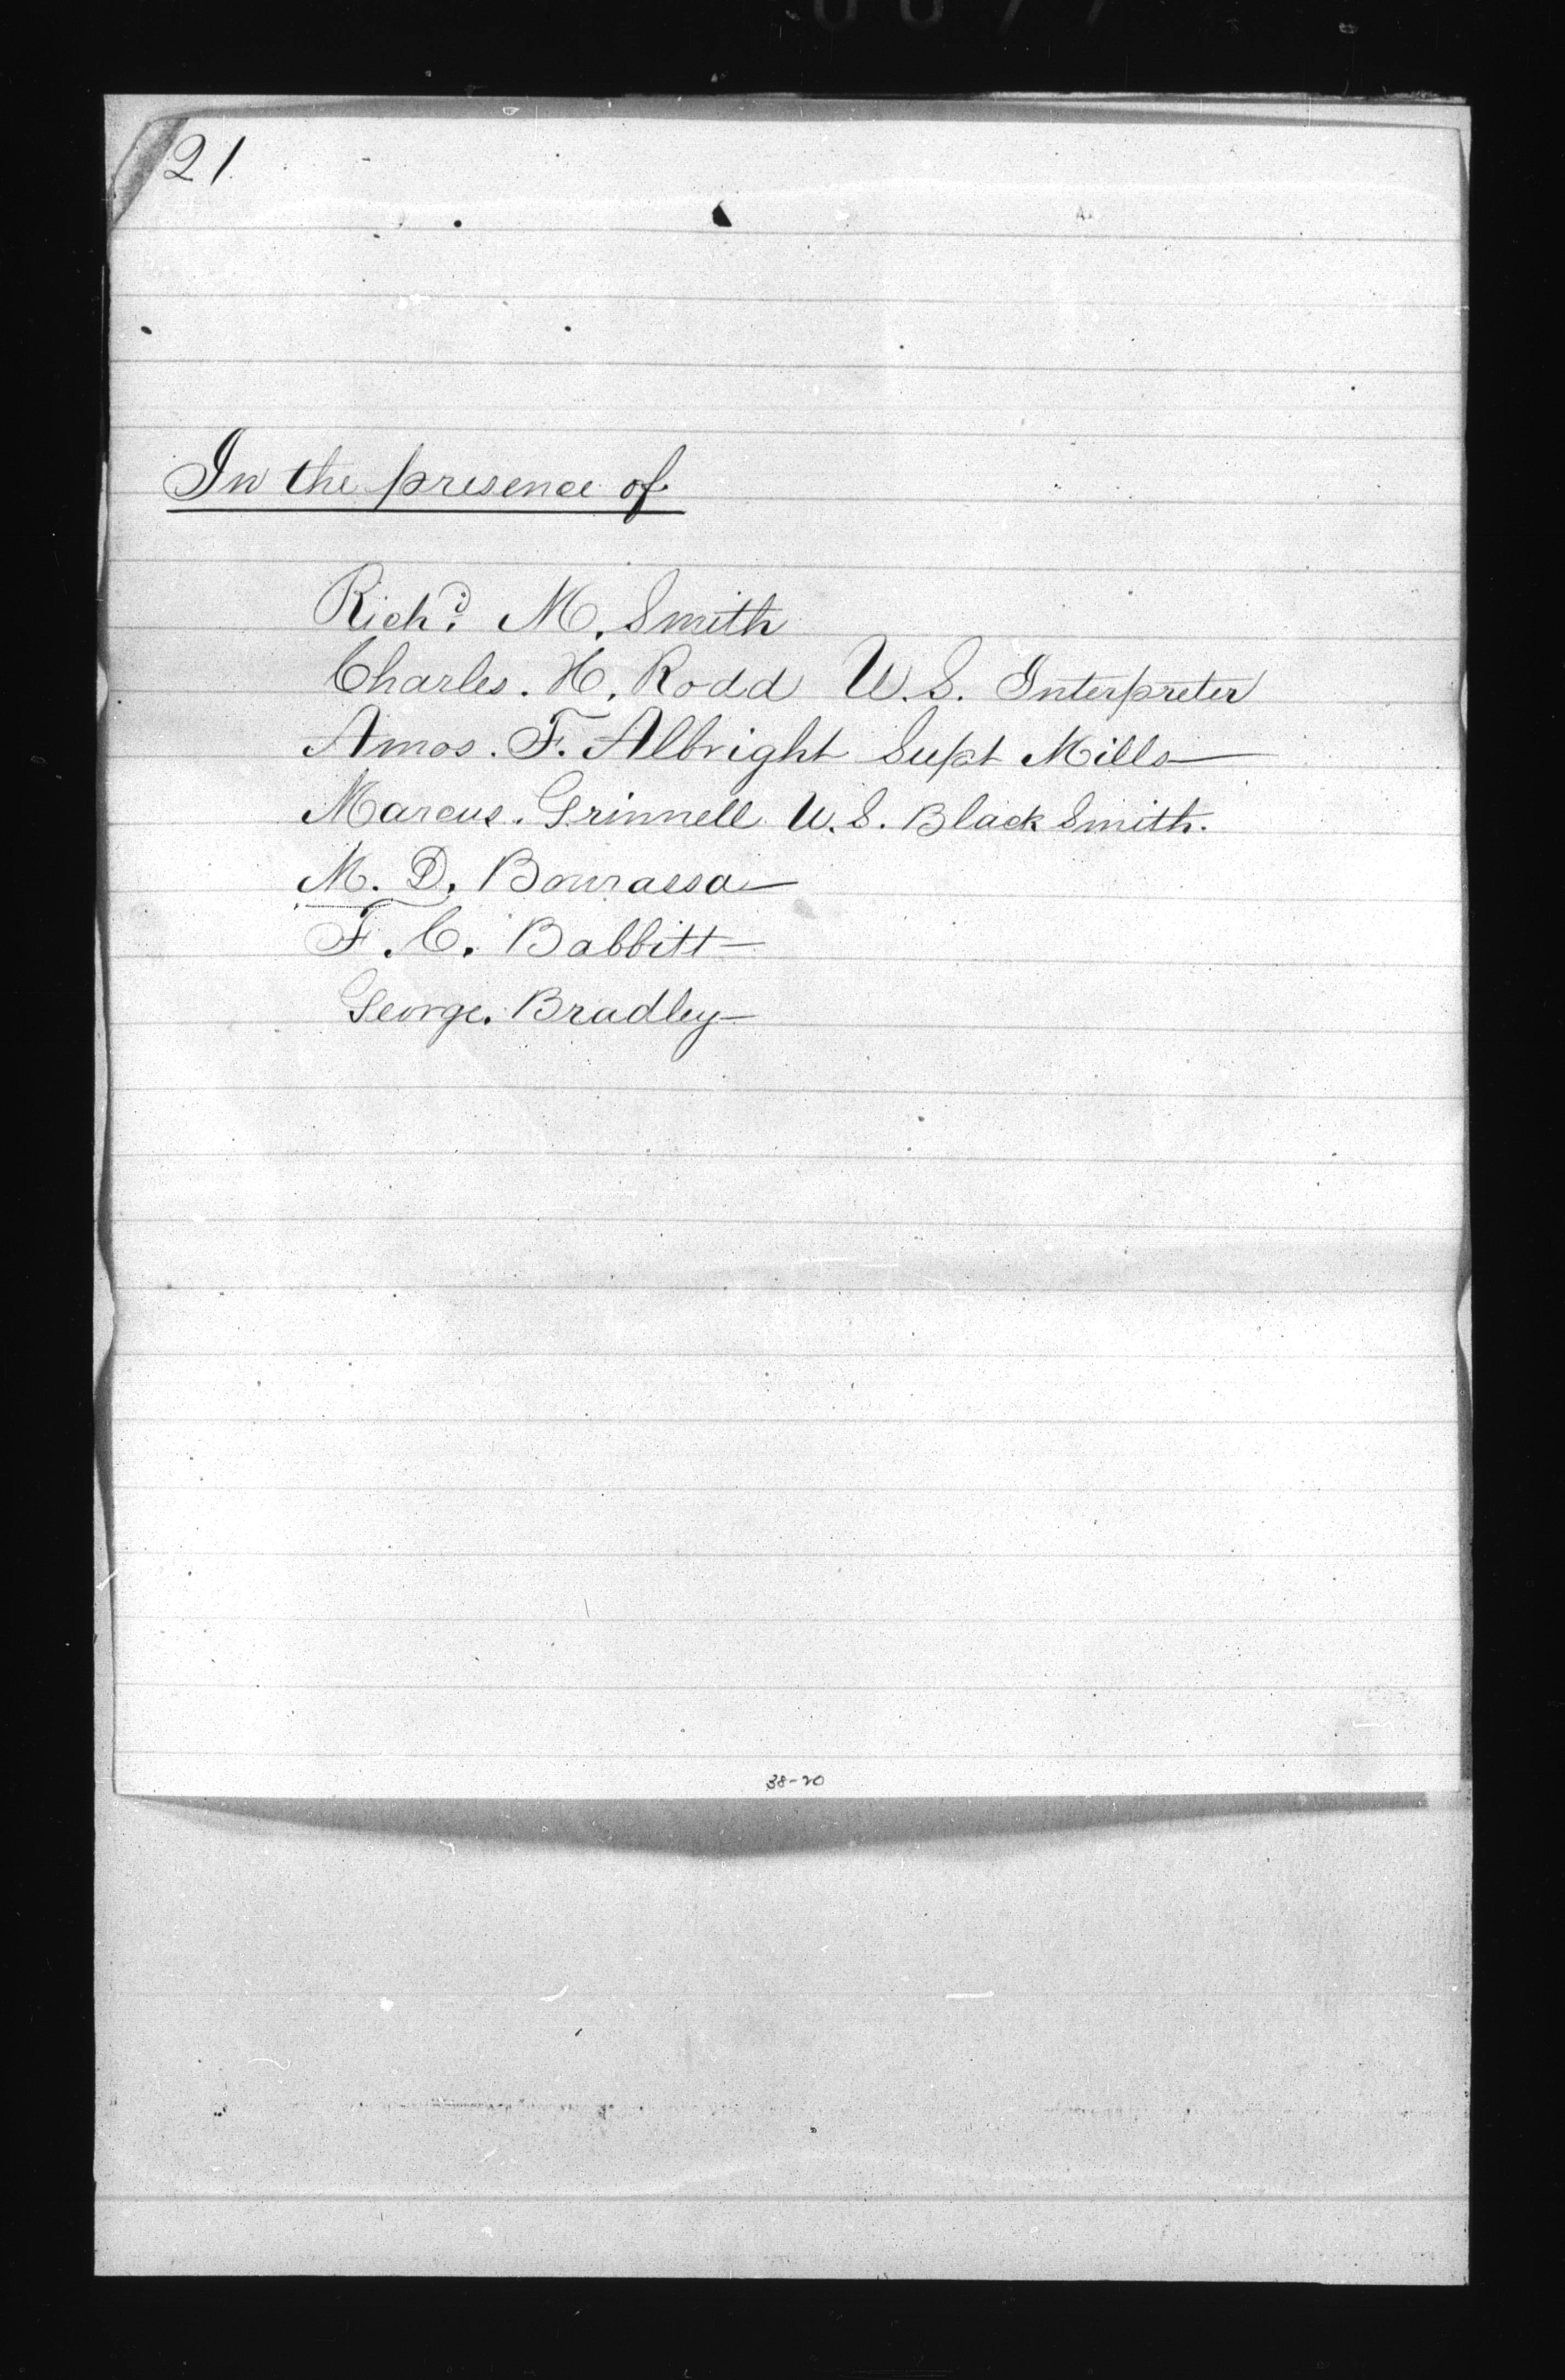 21
In the presence of
Richd. M. Smith
Charles. H. Rodd U.S. Interpreter
Amos. F. Albright Supt Mills—
Marcus. Grinnell U.S. Black Smith.
M. D. Bourassa—
F. C. Babbitt—
George. Bradley—
38-20